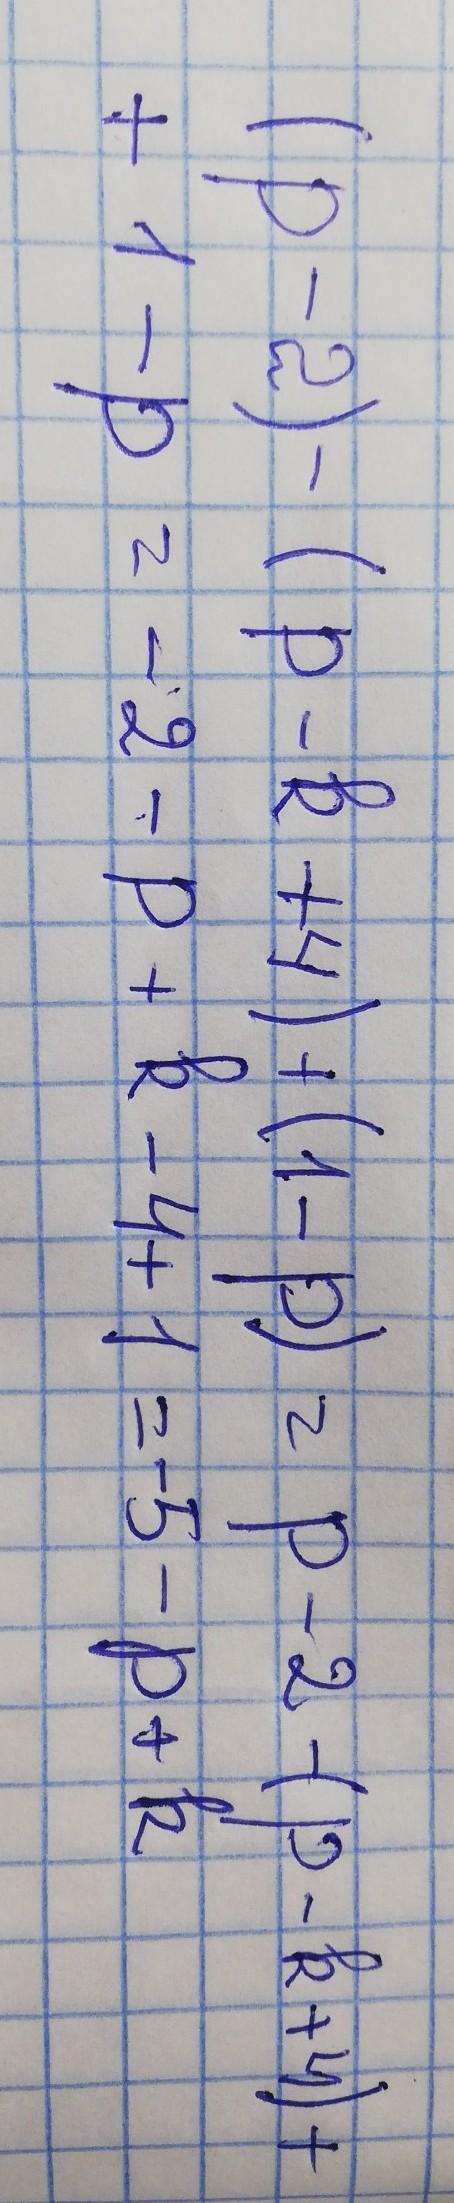 (p - 2) - (p - k + 4) + (1 - p) = p - 2 - (p - k + 4) +
+ 1 - p = - 2 - p + k - 4 + 1 = - 5 - p + k